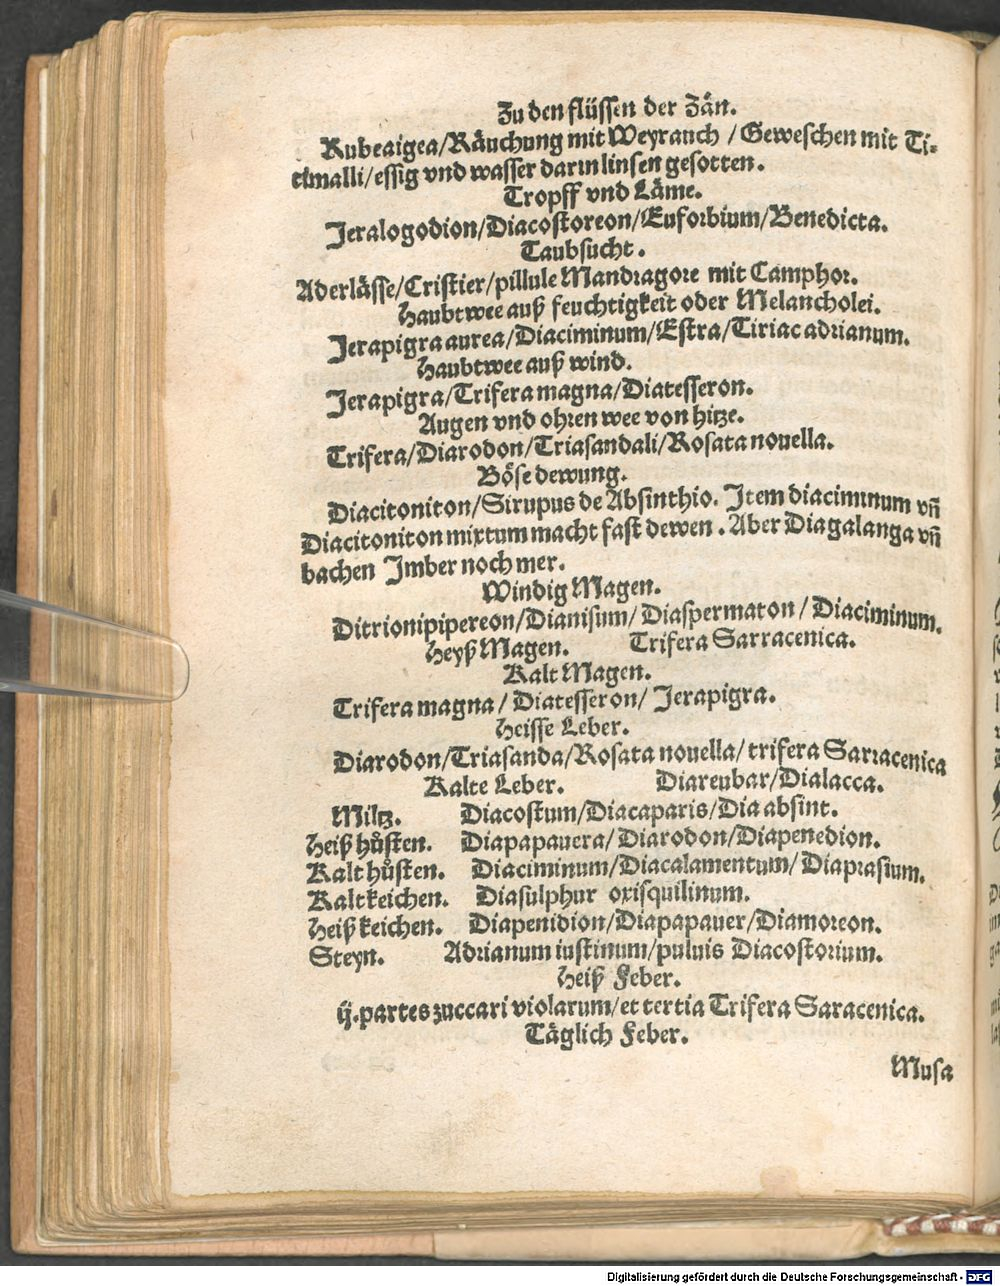 Zu den flüssen der Zän.
Rubeaigea/Räuchung mit Weyrauch / Geweschen mit Ti-
timalli/essig vnd wasser darin linsen gesotten.
Tropff vnd Läme.
Jeralogodion/Diacostoreon/Euforbium/Benedicta.
Taubsucht.
Aderlässe/Cristier/pillule Mandragore mit Camphor.
Haubtwee auß feuchtigkeit oder Melancholei.
Jerapigra aurea/Diaciminum/Estra/Tiriac adrianum.
Haubtwee auß wind.
Jerapigra/Trifera magna/Diatesseron.
Augen vnd ohren wee von hitze.
Trifera/Diarodon/Triasandali/Rosata nouella.
Böse dewung.
Diacitoniton/Sirupus de Absinthio. Item diaciminum vñ
Diacitoniton mixtum macht fast dewen. Aber Diagalanga vñ
bachen Imber noch mer.
Windig Magen.
Ditrionipipereon/Dianisum/ Diaspermaton / Diaciminum.
Heyß Magen. Trifera Sarracenica.
Kalt Magen.
Trifera magna / Diatesseron/ Jerapigra.
Heisse Leber.
Diarodon/Triasanda/Rosata nouella/ trifera Sarracenica
Kalte Leber. Diareubar/Dialacca.
Miltz. Diacostum/Diacaparis/Dia absint.
Heiß hůsten. Diapapauera/Diarodon/Diapenedion.
Kalt hůsten. Diaciminum/Diacalamentum/Diaprasium.
Kalt keichen. Diasulphur oxisquilinum.
Heiß keichen. Diapenidion/Diapapauer/Diamoreon.
Steyn. Adrianum iustinum/puluis Diacostorium.
Heiß Feber.
ij. partes zuccari violarum/et tertia Trifera Saracenica.
Täglich Feber.
Musa
Digitalisierung gefördert durch die Deutsche Forschungsgemeinschaft - DFG